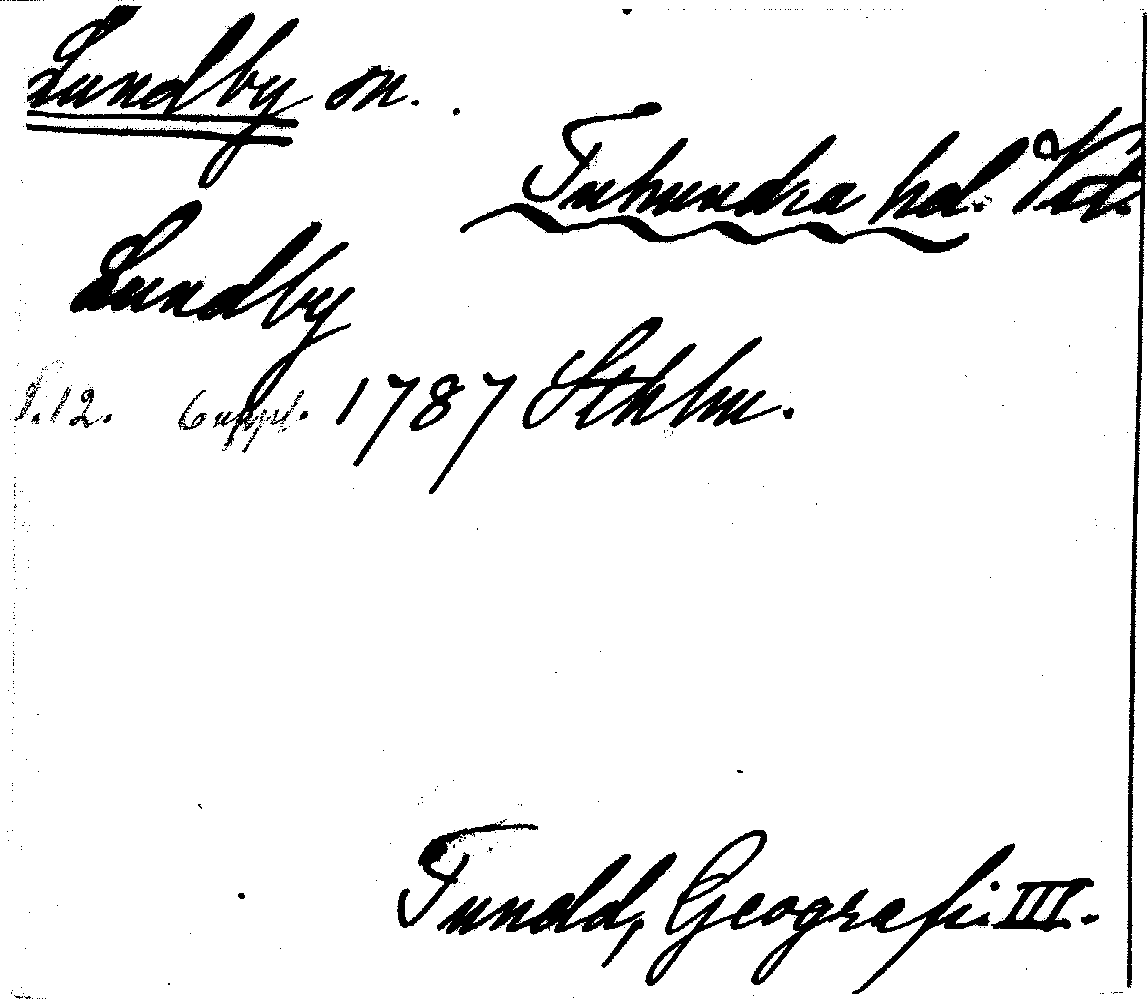 Lundby sn.
Tuhundra hd. Vstm.
Lundby
S.12. 6 uppl. 1787 Sthlm.
Tuneld, Geografi. III.